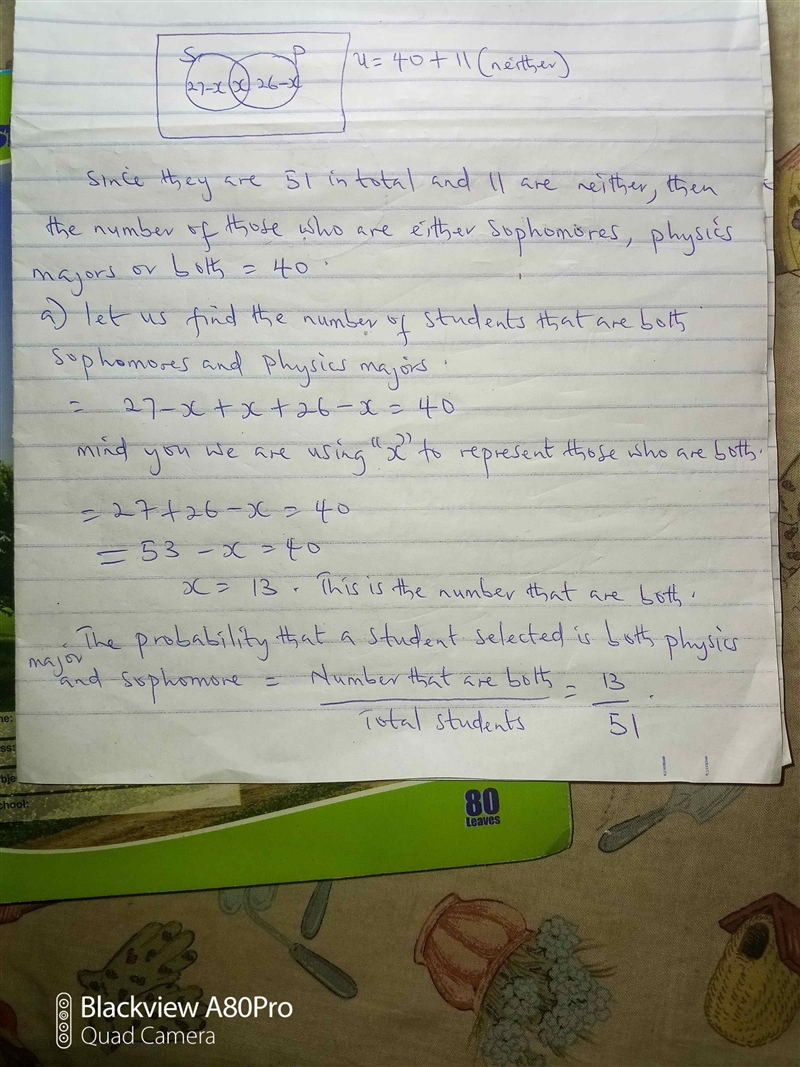 S P
27-x x 26-x
U = 40 + 11 (neither)
Since they are 51 in total and 11 are neither, then
the number of those who are either Sophomores, physics
majors or both = 40.
a) let us find the number of students that are both
Sophomores and physics majors.
= 27-x + x + 26-x = 40
mind you we are using "x" to represent those who are both.
= 27+26-x = 40
= 53 - x = 40
x = 13. This is the number that are both.
The probability that a student selected is both physics
major
and sophomore = Number that are both = 13
Total students 51
80
Leaves
Blackview A80Pro
Quad Camera